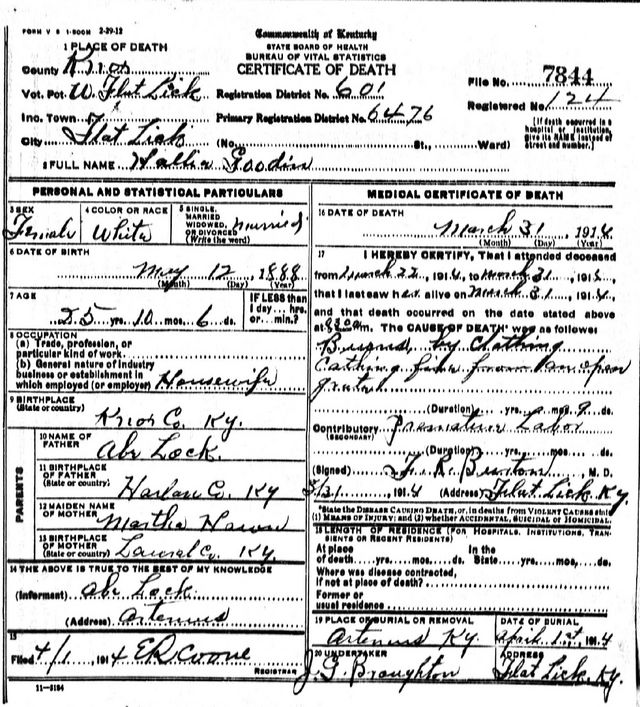 FORM V S 1-500M 2-29-12
Commonwealth of Kentucky
STATE BOARD OF HEALTH
BUREAU OF VITAL STATISTICS
CERTIFICATE OF DEATH
1 PLACE OF DEATH
County Knox
Vot. Pct. W. Flat Lick
Registration District No. 601
File No. 7844
Inc. Town
Primary Registration District No. 6476
Registered No. 124
City Flat Lick (No. St., Ward)
[If death occurred in a hospital or institution, give its NAME instead of street and number.]
2 FULL NAME Hallie Goodin
PERSONAL AND STATISTICAL PARTICULARS
3 SEX Female
4 COLOR OR RACE White
5 SINGLE, MARRIED WIDOWED, OR DIVORCED (Write the word) Married
6 DATE OF BIRTH
May 12, 1888
(Month) (Day) (Year)
7 AGE
25 yrs. 10 mos. 6 ds.
IF LESS than 1 day... hrs. or... min.?
8 OCCUPATION
(a) Trade, profession, or particular kind of work
(b) General nature of industry business or establishment in which employed (or employer) Housewife
9 BIRTHPLACE
(State or country)
Knox Co. Ky.
PARENTS
10 NAME OF FATHER
Abe Lock.
11 BIRTHPLACE OF FATHER
(State or country)
Harlan Co. Ky
12 MAIDEN NAME OF MOTHER
Martha
13 BIRTHPLACE OF MOTHER
(State or country)
Laurel Co. Ky.
14 THE ABOVE IS TRUE TO THE BEST OF MY KNOWLEDGE
(Informant) Abe Lock
(Address) Artemus
15
Filed 4/1, 1914
REGISTRAR
11-3184
MEDICAL CERTIFICATE OF DEATH
16 DATE OF DEATH
March 31, 1914
(Month) (Day) (Year)
17 I HEREBY CERTIFY, That I attended deceased
from March 22, 1914, to March 31, 191
that I last saw her alive on March 31, 1914,
and that death occurred on the date stated above
at m. The CAUSE OF DEATH was as follows:
Burned by Clothing
Catching fire from an open
grate
(Duration) yrs. mos. 9 ds.
Contributory Premature Labor
(SECONDARY)
(Duration) yrs. mos. ds.
(Signed) Burton, M. D.
3/31, 1914 (Address) Flat Lick, Ky.
*State the DISEASE CAUSING DEATH, or, in deaths from VIOLENT CAUSES state (1) MEANS OF INJURY; and (2) whether ACCIDENTAL, SUICIDAL or HOMICIDAL.
18 LENGTH OF RESIDENCE (FOR HOSPITALS, INSTITUTIONS, TRANSIENTS OR RECENT RESIDENTS)
At place of death yrs. mos. ds. In the State yrs. mos. ds.
Where was disease contracted, if not at place of death?
Former or usual residence
19 PLACE OF BURIAL OR REMOVAL
Artemus Ky.
DATE OF BURIAL
April 1st, 1914
20 UNDERTAKER
J. G. Broughton
ADDRESS
Flat Lick, Ky.